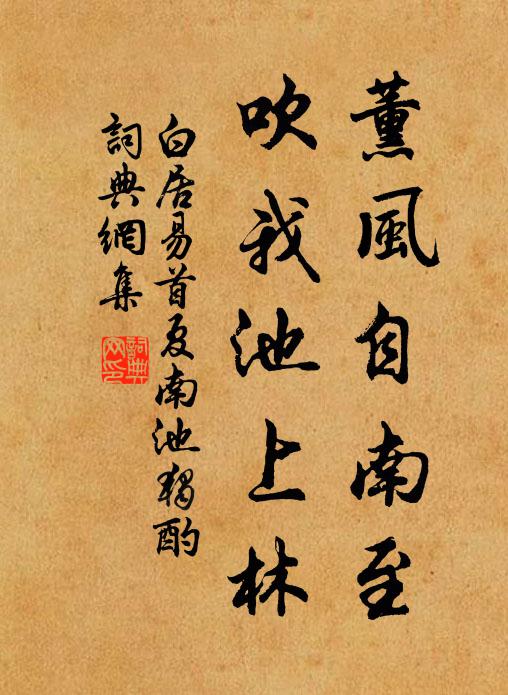 薰風自南至
吹我池上林
白居易首夏南池獨酌
詞典網集
詞典
网印